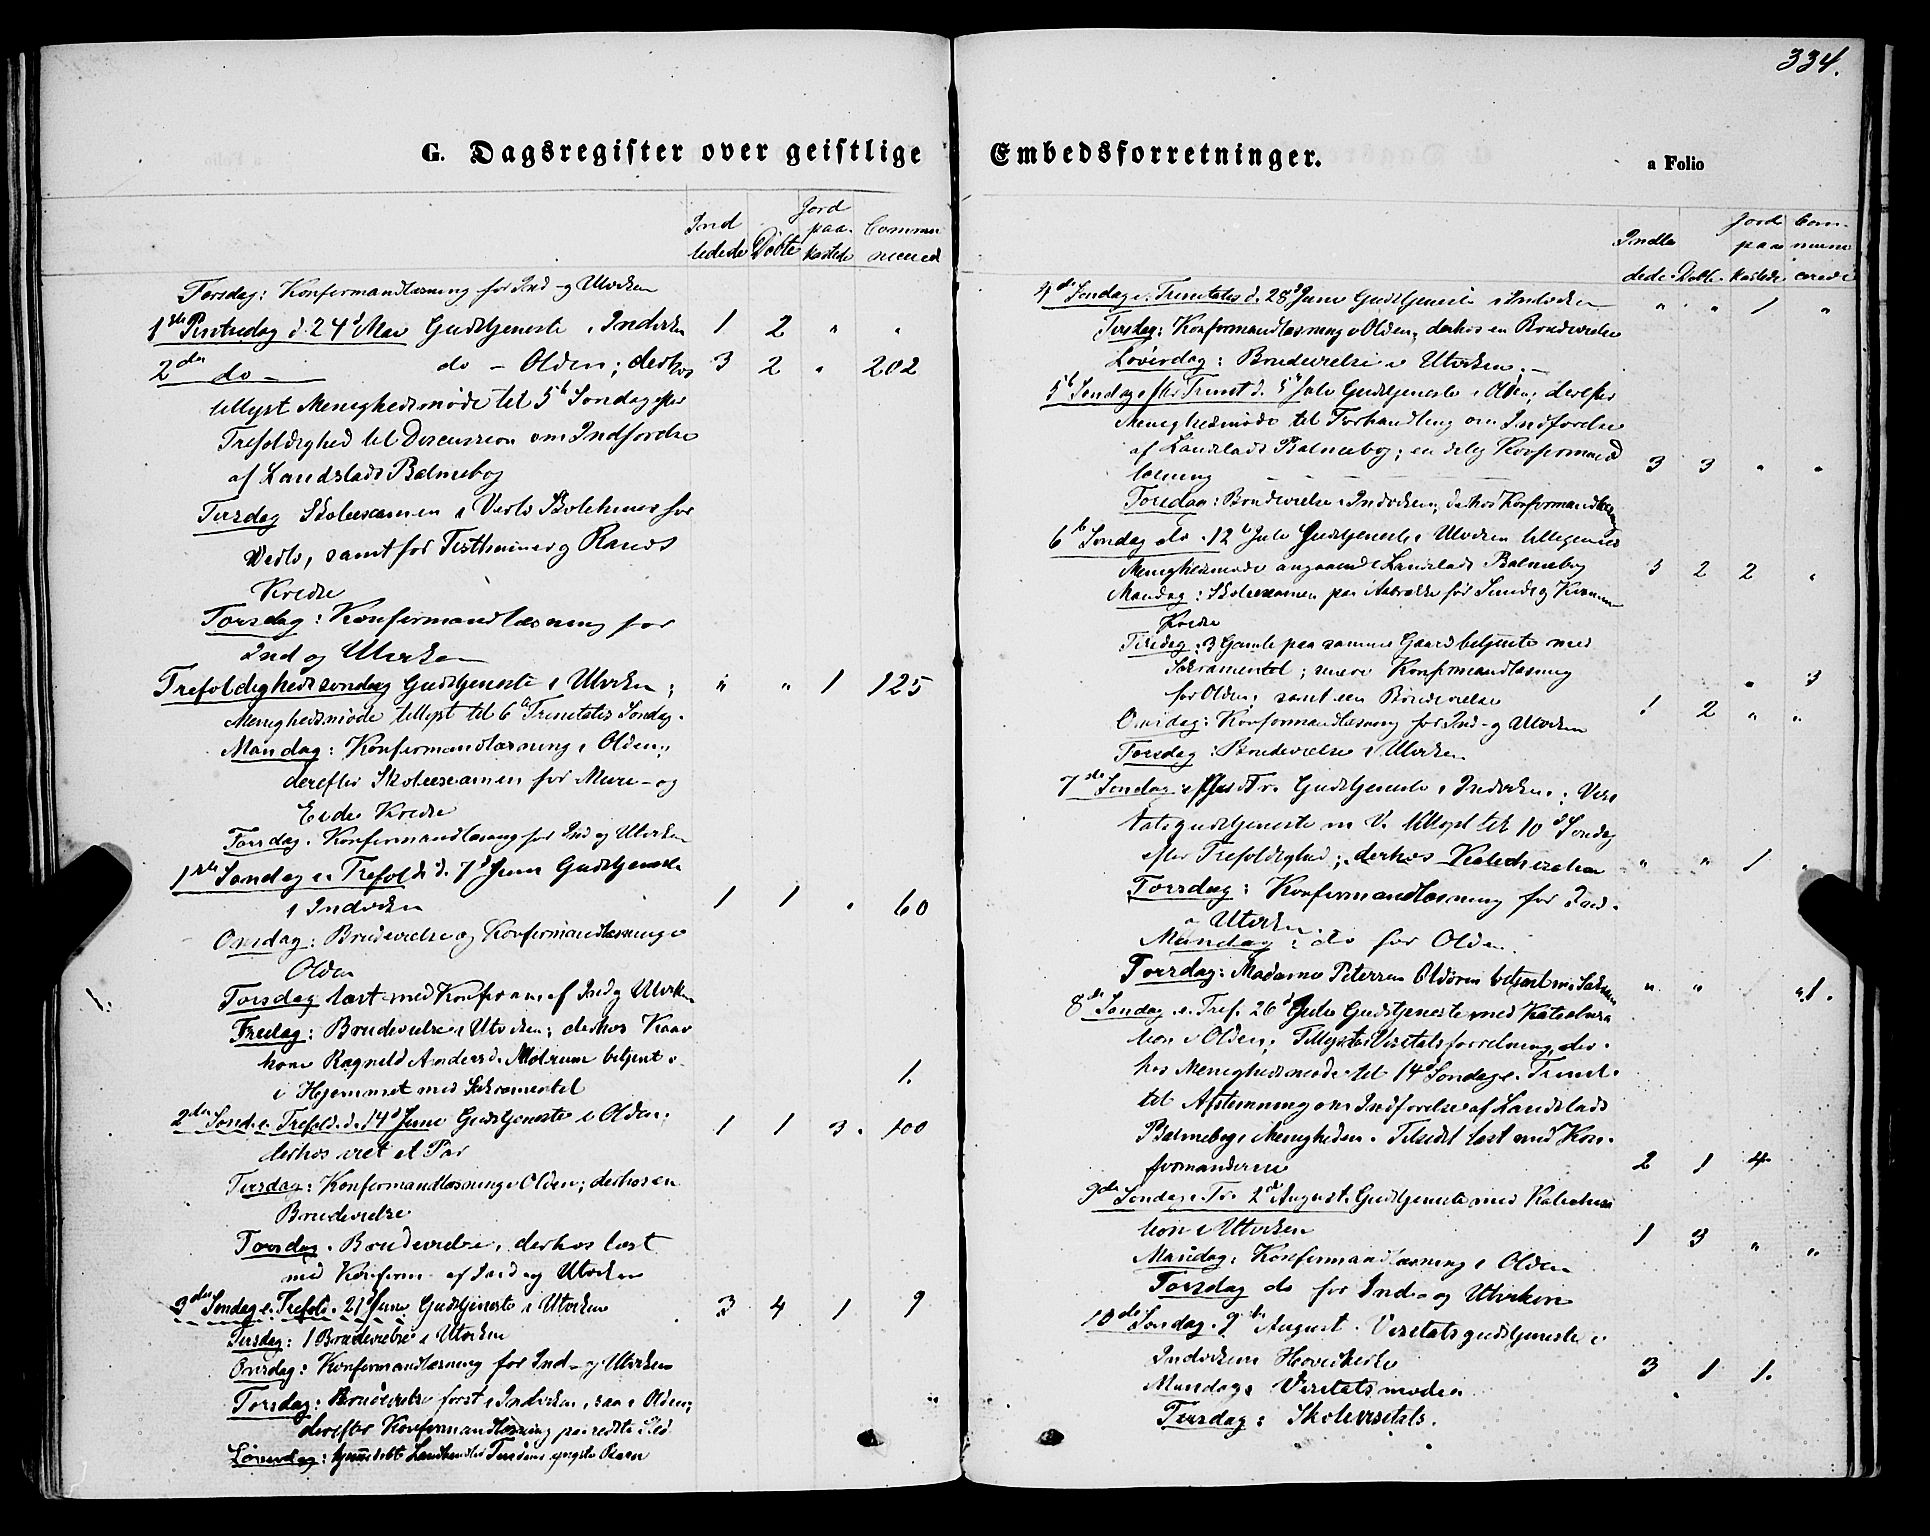 G. Dagsregister over geistlige
Ind
ledede
Døbte
Jord
paa-
kastede
Commu
nicered
Torsdag: Konfirmandlæsning for Ind- og Utviken
1ste Pintsedag d. 24d Mai Gudstjeneste i Indviken 1 2 " "
2den do — do – Olden; derhos 3 2 " 202
tillyst Menighedsmøde til 5te Søndag efter
Trefoldighed til Discussion om Indførelse
af Landstads Psalmebog
Tirsdag Skoleexamen i
Vedls, samt for og
Kredse
Torsdag: Konfirmandlæsning for
Ind og Utviken
Trefoldighedssøndag Gudstjeneste i Utviken; " " 1 125
Menighedsmøde tillyst til 6te Trinitatis Søndag.
Mandag: Konfirmandlæsning i Olden;
derefter Skoleexamen for Mure- og
Eide Kredse
Torsdag. Konfirmandlæsning for Ind og Utviken
1ste Søndag e. Trefold. d. 7d Juni Gudstjeneste
i Indviken 1 1 " 60
Onsdag: Brudevielse og Konfirmandlæsning i
Olden
Torsdag læst med Konfirm. af Ind og Utviken
Fredag: Brudevielse i Utviken; derhos
kone Ragnild Andersd. betjent
i Hjemmet med Sakramentet 1.
2den Sønd. e. Trefold. d. 14d Juni Gudstjeneste i Olden; 1 1 3. 100
derhos viet et Par
Tirsdag: Konfirmandlæsning i Olden; derhos en
Brudevielse
Torsdag. Brudevielse, derhos læst
med Konfirm. af Ind og Utviken
3die Søndag e. Trefold. 21d Juni Gudstjeneste i Utviken 3 4 1 9
Tirsdag: 1 Brudevielse i Utviken
Onsdag: Konfirmandlæsning for Ind- og Utviken
Torsdag: Brudevielse først i Indviken, saa i Olden;
derefter Konfirmandlæsning
Løverdag: hjemmedøbt yngste
334.
Embedsforretninger.
a Folio
Indle
dede.
Døbte.
Jord
paa
kastede
Com-
muni
cerede
4de Søndag e. Trinitatis d. 28d Juni Gudstjeneste i Indviken " " 1 "
Tirsdag: Konfirmandlæsning i Olden, derhos en Brudevielse
Løverdag: Brudevielse i Utviken. –
5te Søndag efter Trinit. d. 5te Juli Gudstjeneste i Olden; derefter
Menighedsmøde til Forhandling om Indførelse
af Landstads Psalmebog; endelig Konfirmand
læsning 3 3 " "
Torsdag: Brudevielse i Indviken; derhos Konfirmandlæsning
6te Søndag do. 12te Juli Gudstjeneste i Utviken tilligemed
Menighedsmøde angaaende Landstads Psalmebog 3 2 2 "
Mandag: Skoleexamen paa for Sunde og
Kredse
Tirsdag: 3 Gamle paa samme Gaard betjente med
Sakramentet; Konfirmandlæsning
for Olden; samt een Brudevielse " 3
Onsdag: Konfirmandlæsning for Ind- og Utviken 1 2 " "
Torsdag: Brudevielse i Utviken
7de Søndag efter Tr. Gudstjeneste i Indviken; Visi
tatsgudstjeneste m. V. tillyst til 10de Søndag
efter Trefoldighed; derhos Katechisation " " 1 "
Torsdag: Konfirmandlæsning for Ind-
og Utviken.
Mandag: do for Olden
Torsdag: Madame Petersen Oldøren betjent m. Sakram " " "1.
8de Søndag e. Tref. 26d Juli Gudstjeneste med Katechisa
tion i Olden; Tillyst Visitatsforretning, der-
hos Menighedsmøde til 14de Søndag e. Trinit.
til Afstemning om Indførelse af Landstads
Psalmebog i Menigheden. Tilsidst læst med Kon-
firmanderne 2 1 4
9de Søndag e. Tr. 2d August. Gudstjeneste med Katechisa
tion i Utviken 1 3 " "
Mandag: Konfirmandlæsning i Olden
Torsdag do for Ind- og Utviken
10de Søndag. 9de August. Visitatsgudstjeneste i
Indvikens Hovedkirke 3 1 1.
Mandag: Visitatsmøde i
Tirsdag: Skolevisitats.